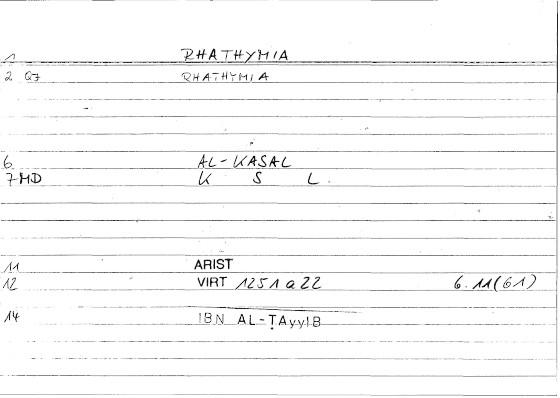 1 RHATHYMIA
2 Q7 RHATHYMIA
6 AL-KASAL
7 MD K S L.
11 ARIST
12 VIRT 1251 a 22 6.11(61)
14 IBN AL-ṬAyyIB